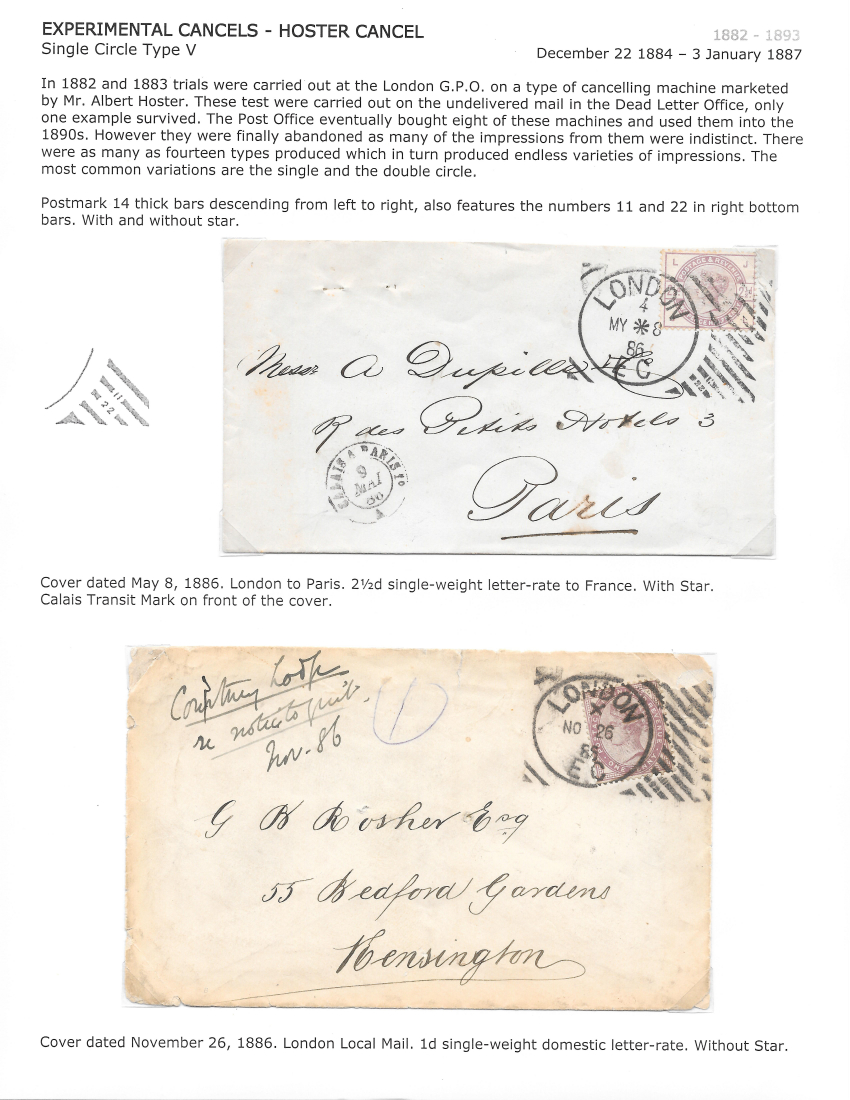 EXPERIMENTAL CANCELS - HOSTER CANCEL
1882 - 1893
Single Circle Type V
December 22 1884 – 3 January 1887
In 1882 and 1883 trials were carried out at the London G.P.O. on a type of cancelling machine marketed
by Mr. Albert Hoster. These test were carried out on the undelivered mail in the Dead Letter Office, only
one example survived. The Post Office eventually bought eight of these machines and used them into the
1890s. However they were finally abandoned as many of the impressions from them were indistinct. There
were as many as fourteen types produced which in turn produced endless varieties of impressions. The
most common variations are the single and the double circle.
Postmark 14 thick bars descending from left to right, also features the numbers 11 and 22 in right bottom
bars. With and without star.
L J
LONDON
4
MY * 8
86
E C
11
22
Messr A Dupille
R des Petits Hotels 3
Paris
CALAIS A PARIS
9
MAI
86
Cover dated May 8, 1886. London to Paris. 2½d single-weight letter-rate to France. With Star.
Calais Transit Mark on front of the cover.
re notice to quit
Nov. 86
1
LONDON
X
NO 26
86
E C
G B Rosher Esq
55 Bedford Gardens
Kensington
Cover dated November 26, 1886. London Local Mail. 1d single-weight domestic letter-rate. Without Star.